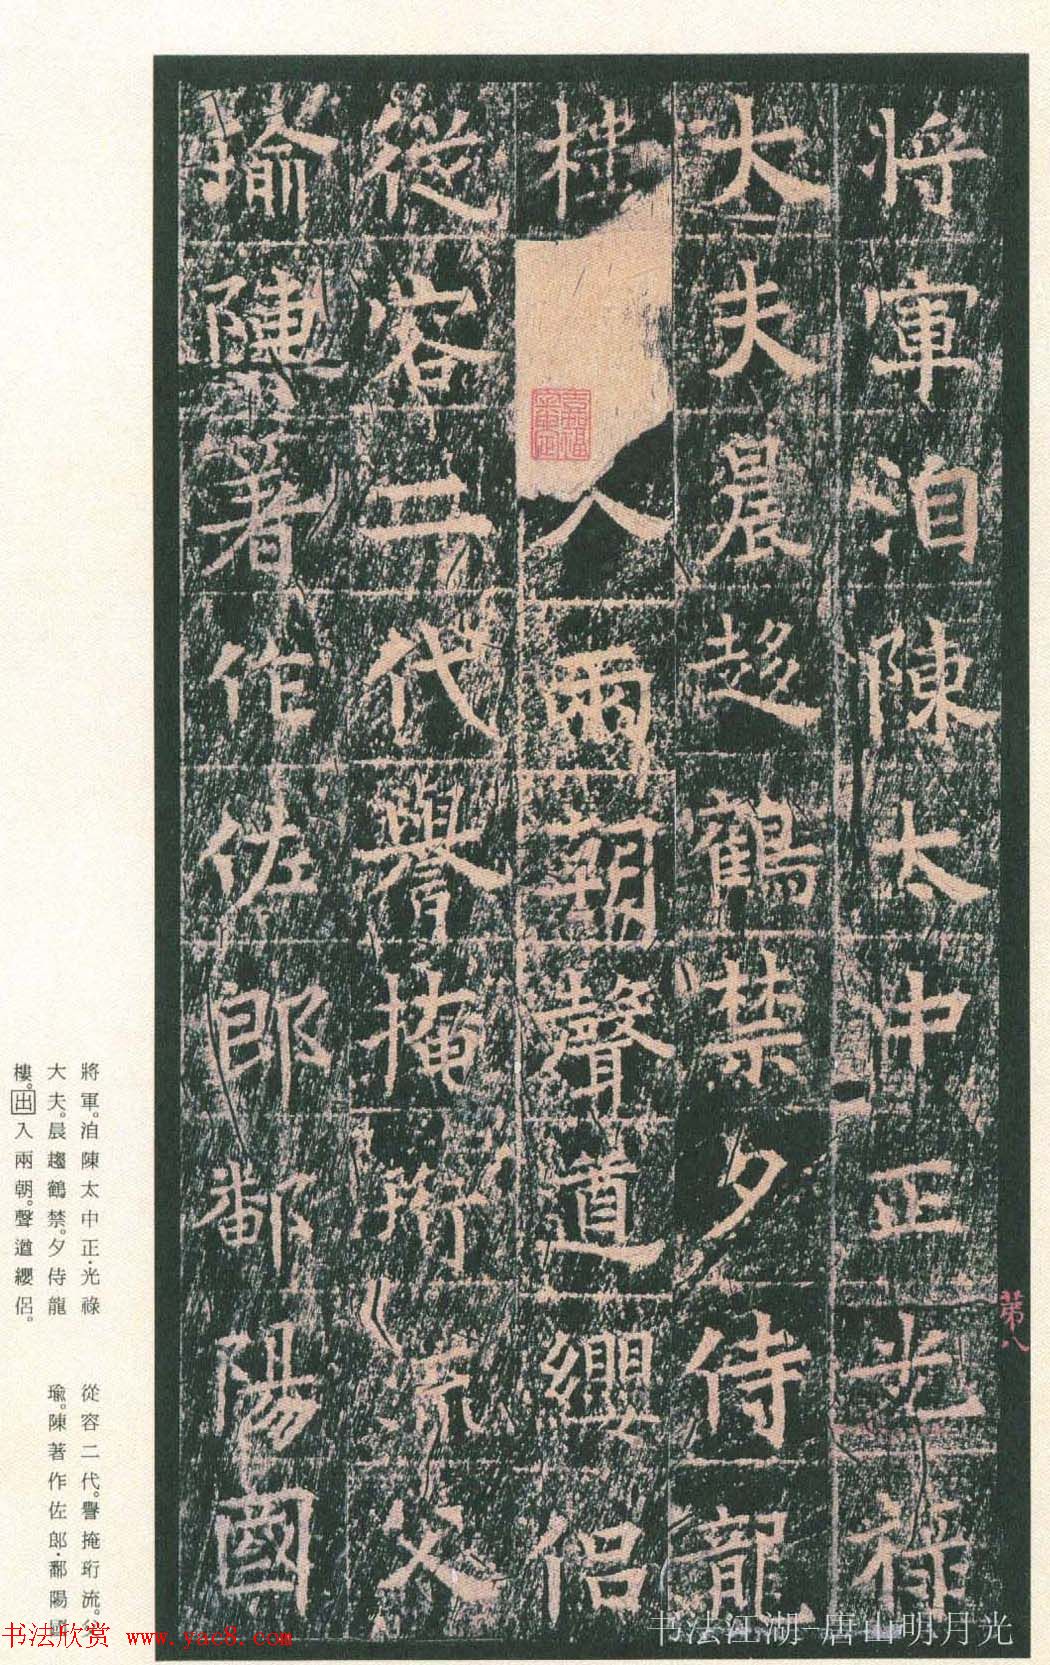 將軍洎陳太中正光祿
大夫晨趍鶴禁夕侍龍
樓入兩朝聲遒纓侶
從容二代譽掩珩流父
瑜陳著作佐郎鄱陽國
第八
將軍。洎陳太中正·光祿
大夫。晨趨鶴禁。夕侍龍
樓。出入兩朝。聲遒纓侶。
從容二代。譽掩珩流。父
瑜。陳著作佐郎·鄱陽國
书法欣赏 www.yac8.com
书法江湖-唐山明月光